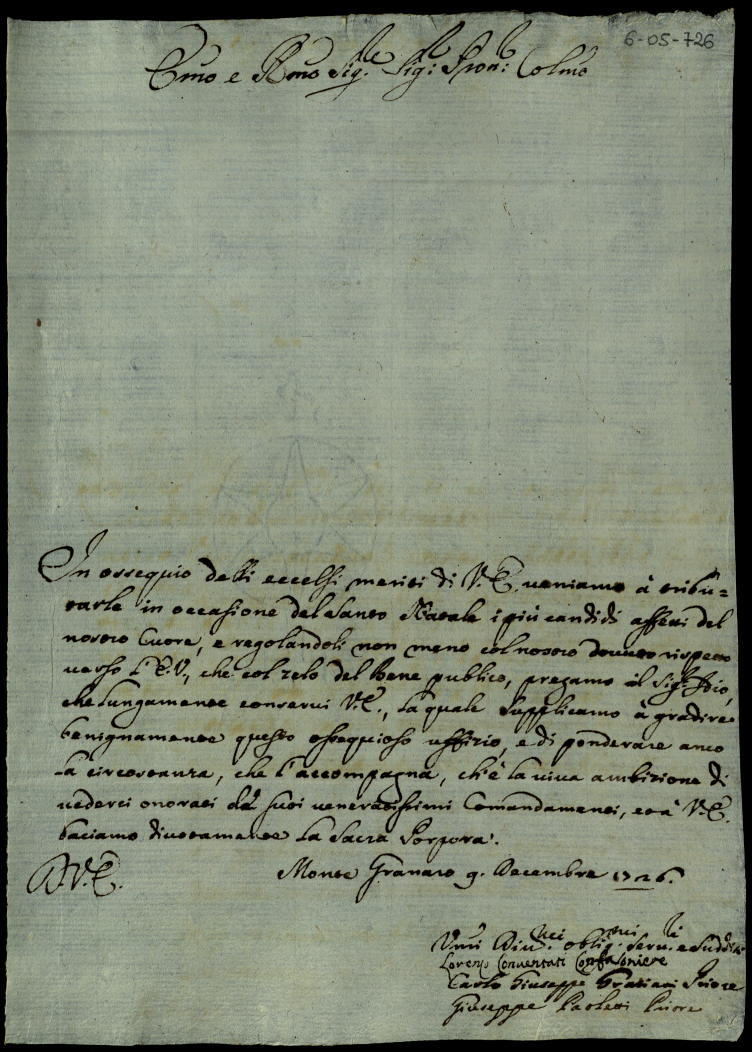 6-05-726
Emo e Rmo Sig.re Sig: Pron: Colmo
In ossequio delli eccelsi meriti di V.E. veniamo à tribu=
tarle in occasione del Santo Natale i più candidi affetti del
nostro Cuore, e regolandoli non meno col nostro dovuto rispetto
verso l'E.V., che col zelo del bene publico, pregamo il Sig.re Iddio,
che lungamente conservi V.E., la quale supplicamo à gradire
benignamente questo ossequioso uffizio, e di ponderare anco
la circostanza, che l'accompagna, ch'è la viva ambizione di
vederci onorati da' suoi veneratissimi Comandamenti, et à V.E.
baciamo divotamente la Sacra Porpora.
D.V.E.
Monte Granaro 9. Decembre 1726.
Vmi Div.mi oblig.mi Serv.i e Sudditi
Lorenzo Conventati Confaloniere
Carlo Giuseppe Gratiani Priore
Giuseppe Paoletti Priore